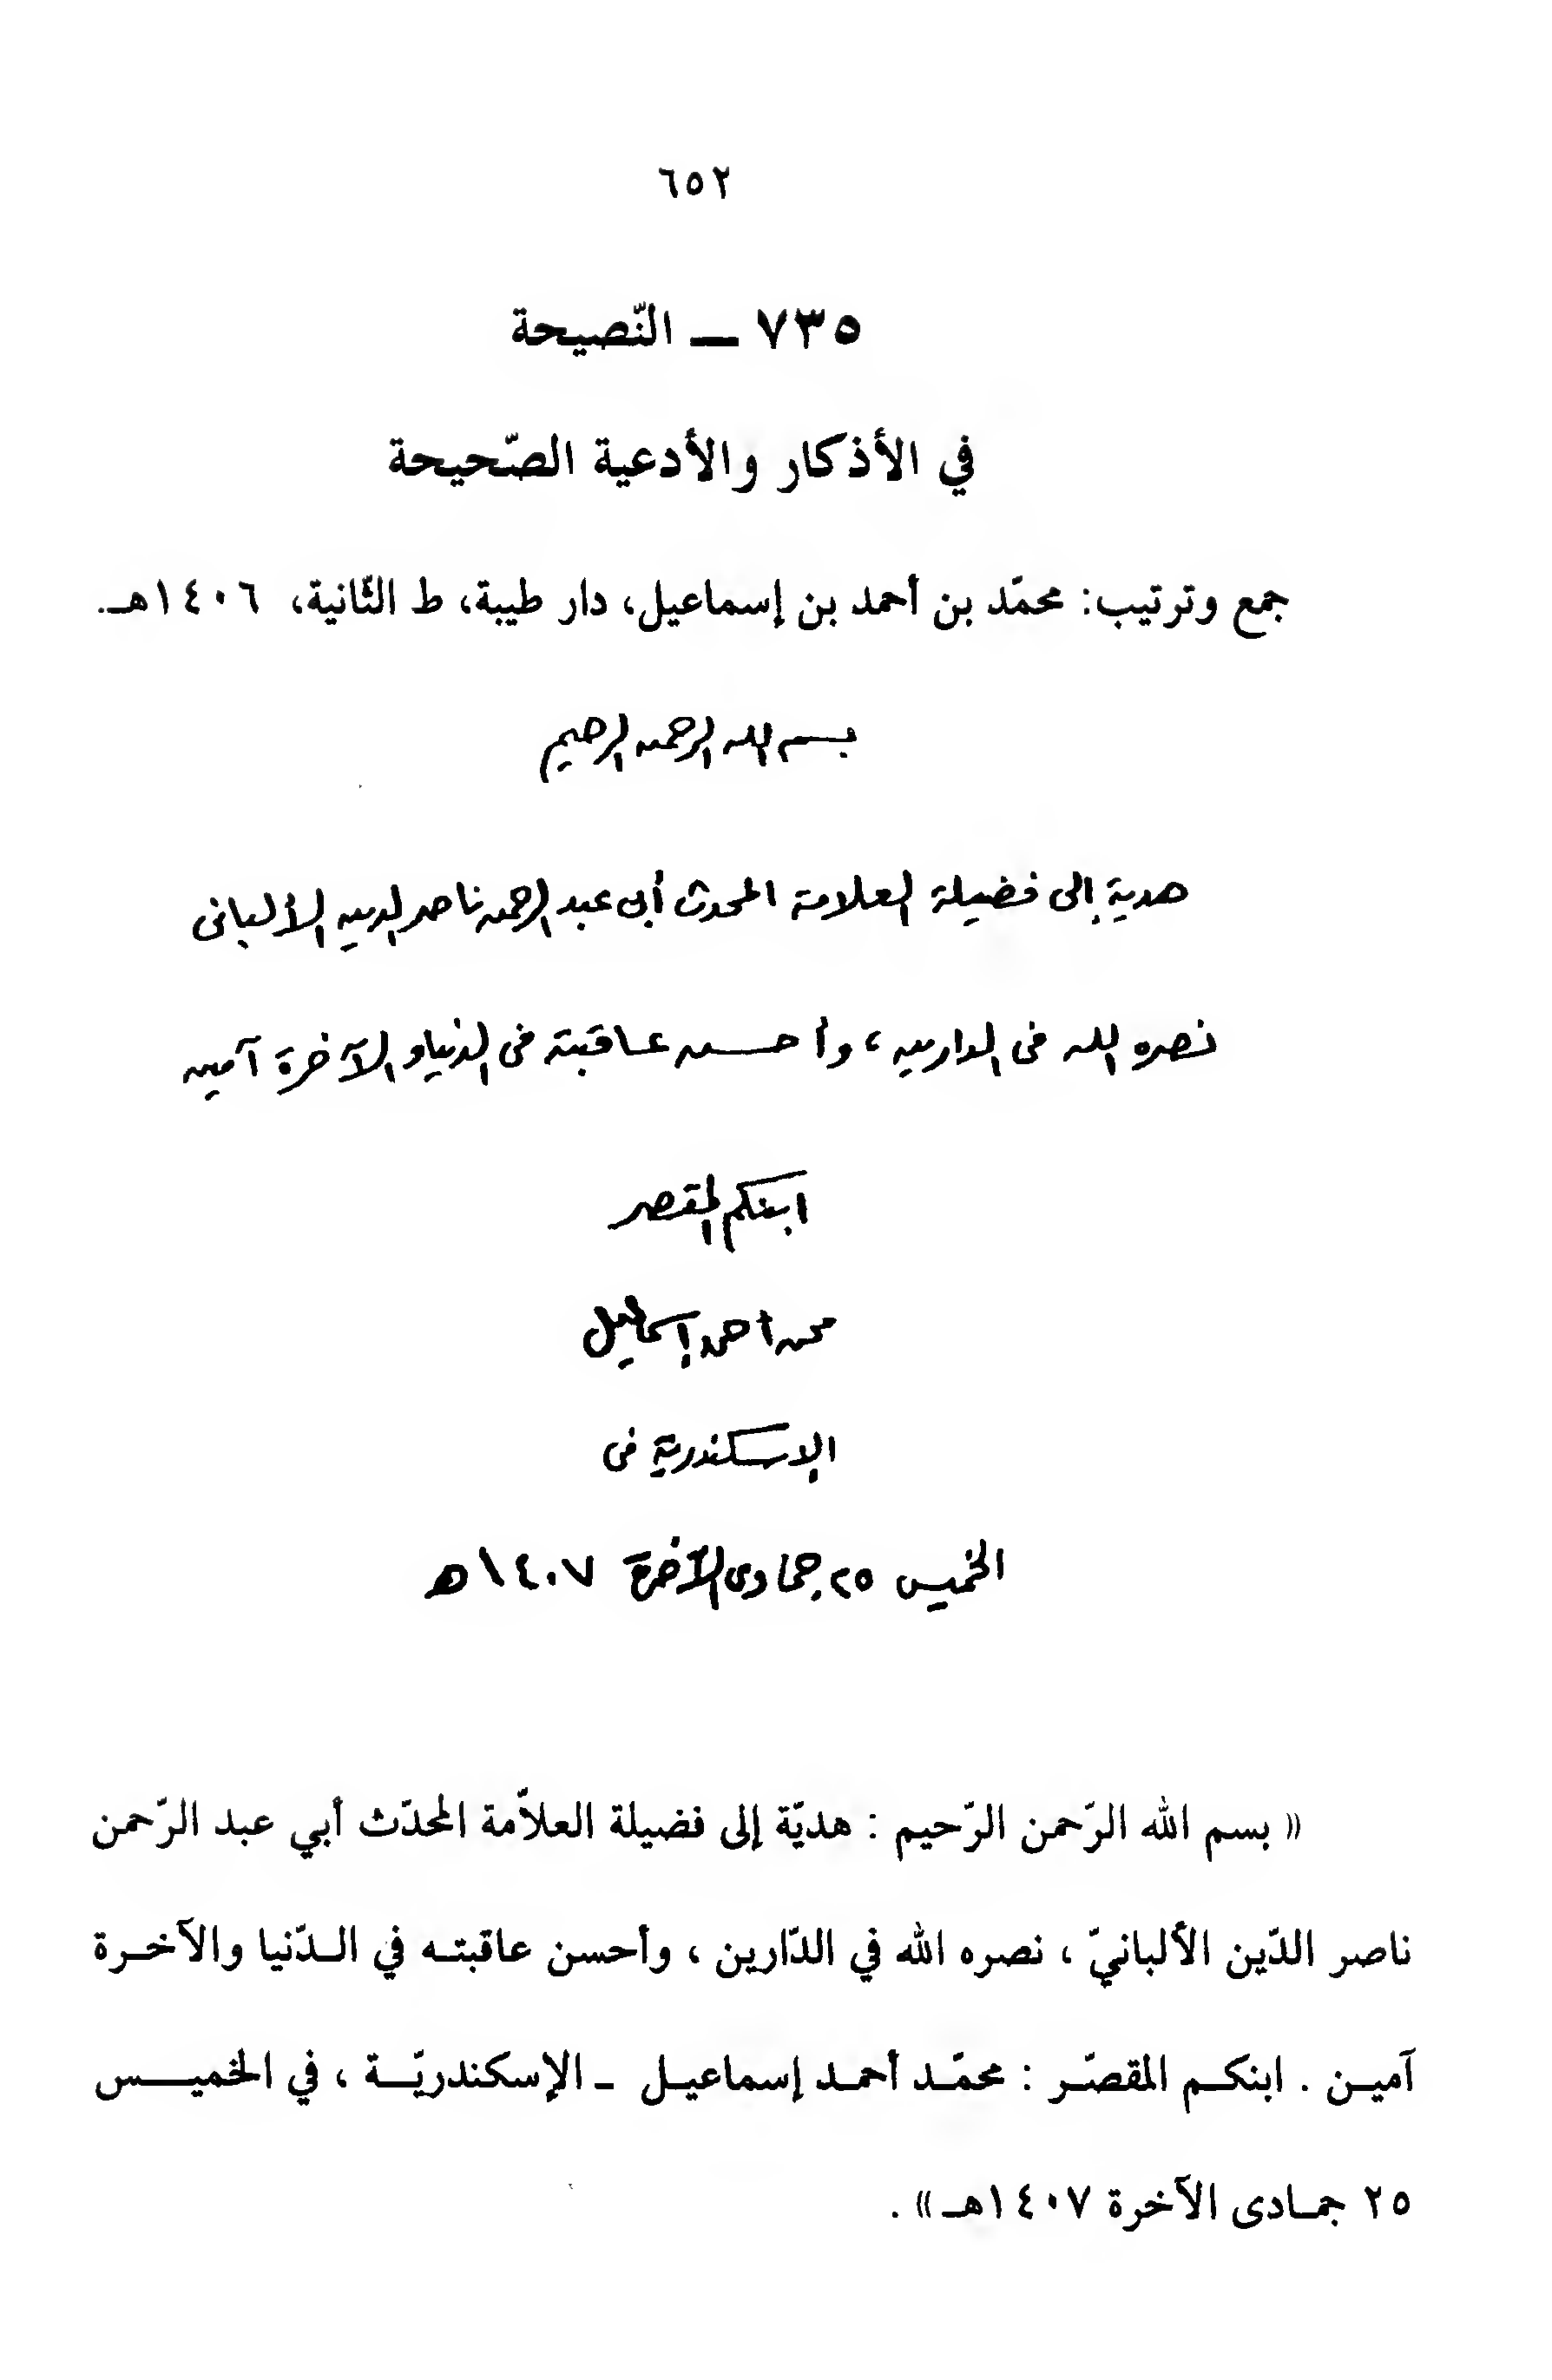 ٦٥٢
٧٣٥ ــ النّصيحة
في الأذكار والأدعية الصّحيحة
جمع وترتيب: محمّد بن أحمد بن إسماعيل، دار طيبة، ط الثّانية، ١٤٠٦هـ.
بسم الله الرحمن الرحيم
هدية إلى فضيلة العلامة المحدث أبى عبد الرحمن ناصر الدين الألبانى
نصره الله فى الدارين، وأحسن عاقبته فى الدنيا والآخرة آمين
ابنكم المقصر
محمد أحمد إسماعيل
الإسكندرية فى
الخميس ٢٥ جمادى الآخرة ١٤٠٧ هـ
« بسم الله الرّحمن الرّحيم : هديّة إلى فضيلة العلاّمة المحدّث أبي عبد الرّحمن
ناصر الدّين الألبانيّ ، نصره الله في الدّارين ، وأحسن عاقبتـه في الـدّنيا والآخـرة
آميـن . ابنكـم المقصّـر : محمّـد أحمـد إسماعيـل ـ الإسكندريّـة ، في الخميـس
٢٥ جمـادى الآخرة ١٤٠٧هـ » .